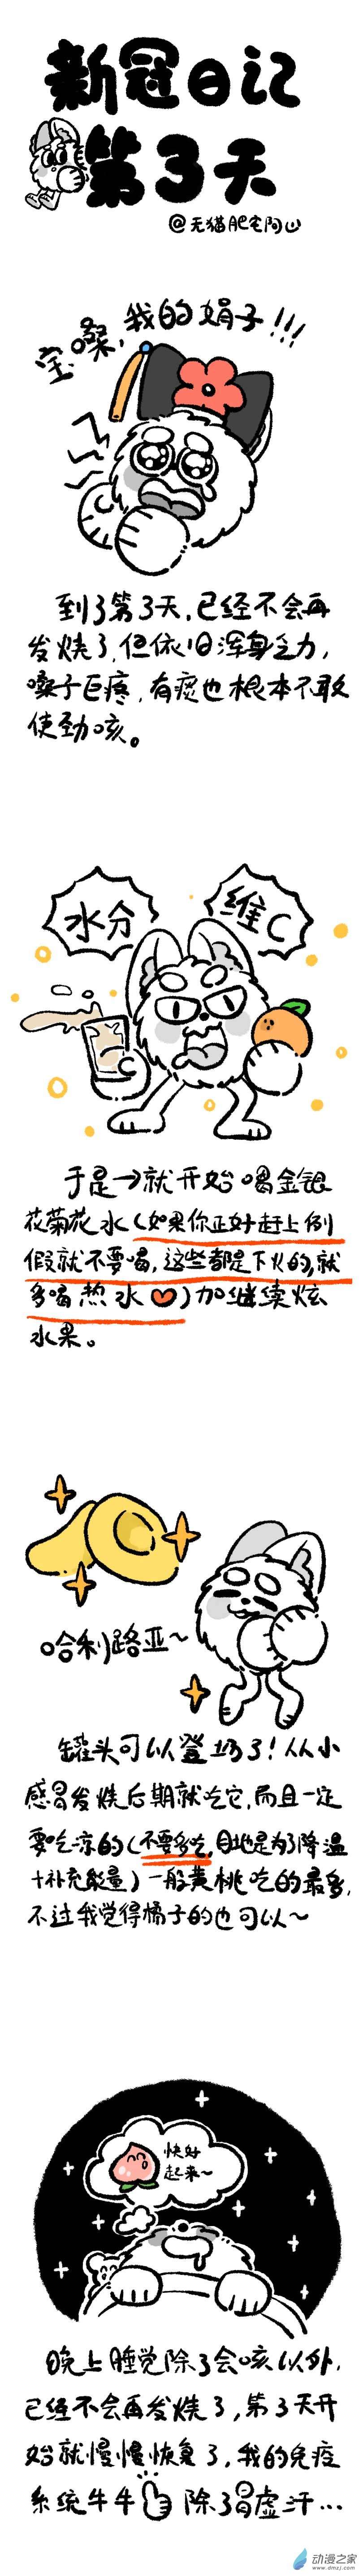 新冠日记
第3天
@无猫肥宅阿山
宝嗓,我的娟子!!!
到了第3天,已经不会再
发烧了,但依旧浑身乏力,
嗓子巨疼,有痰也根本不敢
使劲咳。
水分
维C
于是→就开始喝金银
花菊花水(如果你正好赶上例
假就不要喝,这些都是下火的,就
多喝热水)加继续炫
水果。
哈利路亚~
罐头可以登场了!从小
感冒发烧后期就吃它,而且一定
要吃凉的(不要多吃 目地是为了降温
+补充能量)一般黄桃吃的最多,
不过我觉得橘子的也可以~
快好
起来~
晚上睡觉除了会咳以外,
已经不会再发烧了,第3天开
始就慢慢恢复了,我的免疫
系统牛牛 除了冒虚汗…
动漫之家
www.dmzj.com